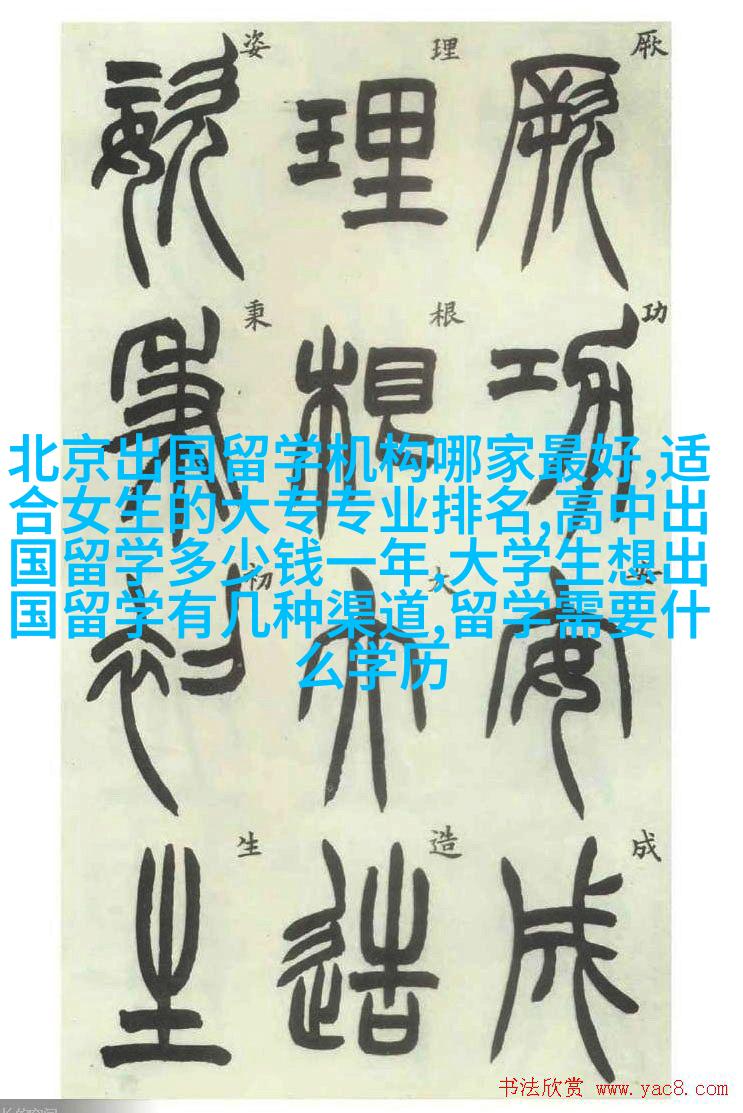 厥功安成
厥功安成
理根大造
理根大造
姿秉初生
姿秉初生
北京出国留学机构哪家最好,适
合女生的大专专业排名,高中出
国留学多少钱一年,大学生想出
国留学有几种渠道,留学需要什
么学历
书法欣赏 www.yac8.com